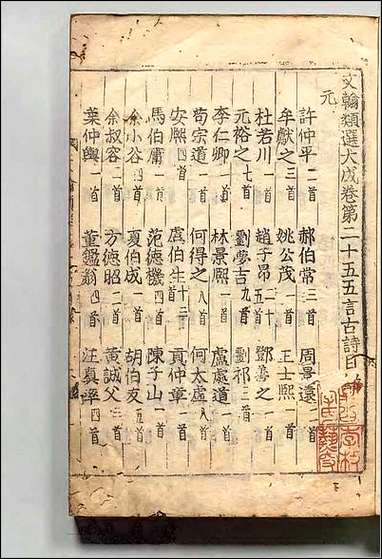 文翰類選大成卷第二十五五言古詩目
元
許仲平二首 郝伯常三首 周景遠一首
牟獻之三首 姚公茂一首 王士熙一首
杜若川一首 趙子昂二十五首 鄧善之一首
元裕之七首 劉夢吉九首 劉祁三首
李仁卿一首 林景熙一首 盧處道一首
荀宗道一首 何得之八首 何太虛八首
安熙四首 虞伯生十三首 貢仲章一首
馬伯庸一首 范德機四首 陳子山一首
余小谷四首 夏伯成一首 胡伯友五首
余叔容二首 方德昭二首 黃誠父二首
葉仲輿一首 董鑑翁四首 汪真率四首